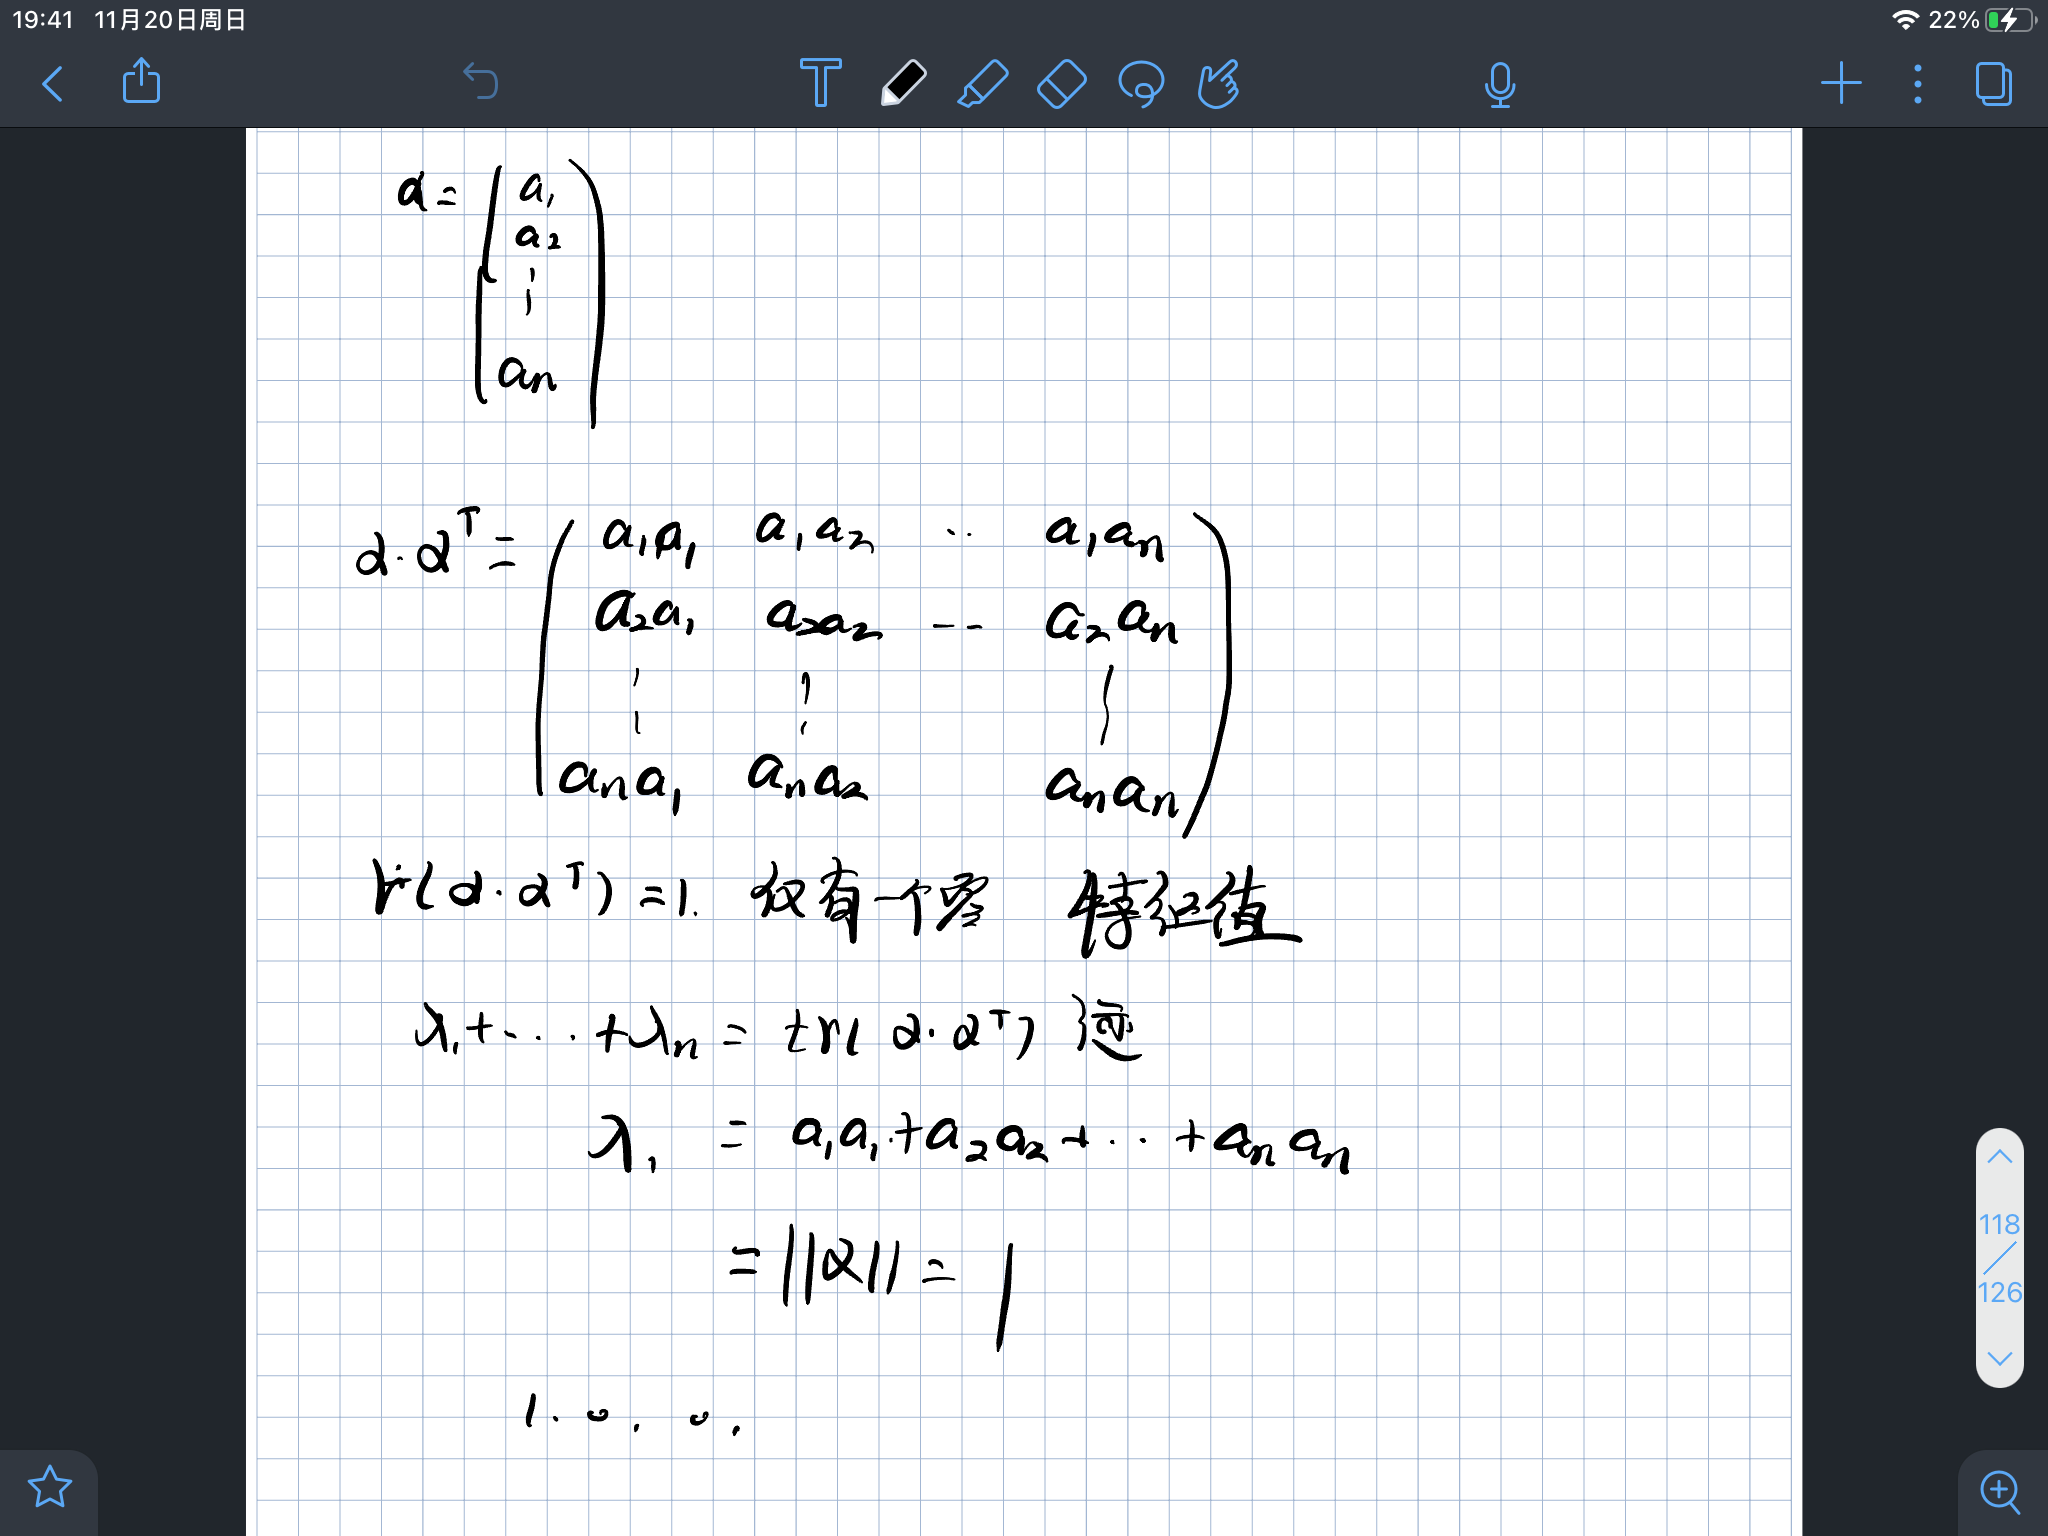 19:41 11月20日周日 22%
T
α = ( a₁
a₂
⋮
aₙ )
α·αᵀ = ( a₁a₁ a₁a₂ ·· a₁aₙ
a₂a₁ a₂a₂ -- a₂aₙ
⋮ ⋮ ⋮
aₙa₁ aₙa₂ aₙaₙ )
r(α·αᵀ) = 1. 仅有一个零 特征值
λ₁+···+λₙ = tr(α·αᵀ) 迹
λ₁ = a₁a₁+a₂a₂+··+aₙaₙ
= ||α|| = 1
1. 0. 0.
118
126